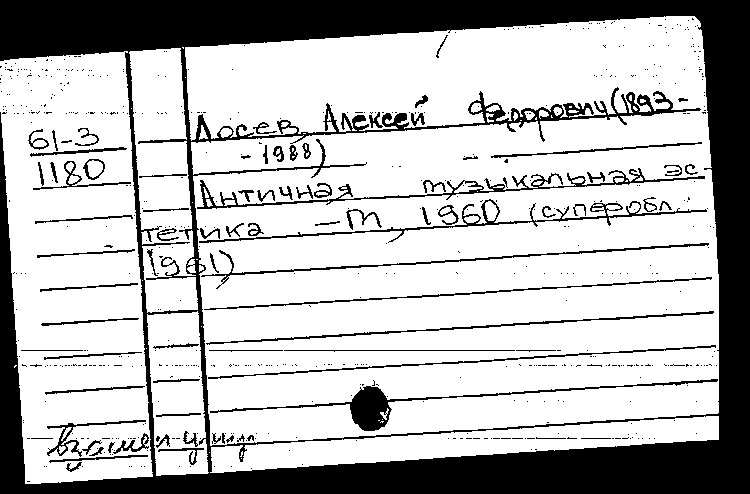 61-3
1180
Лосев, Алексей Федорович (1893-
-1988)
Античная музыкальная эс-
тетика. – М, 1960 (суперобл.:
1961)